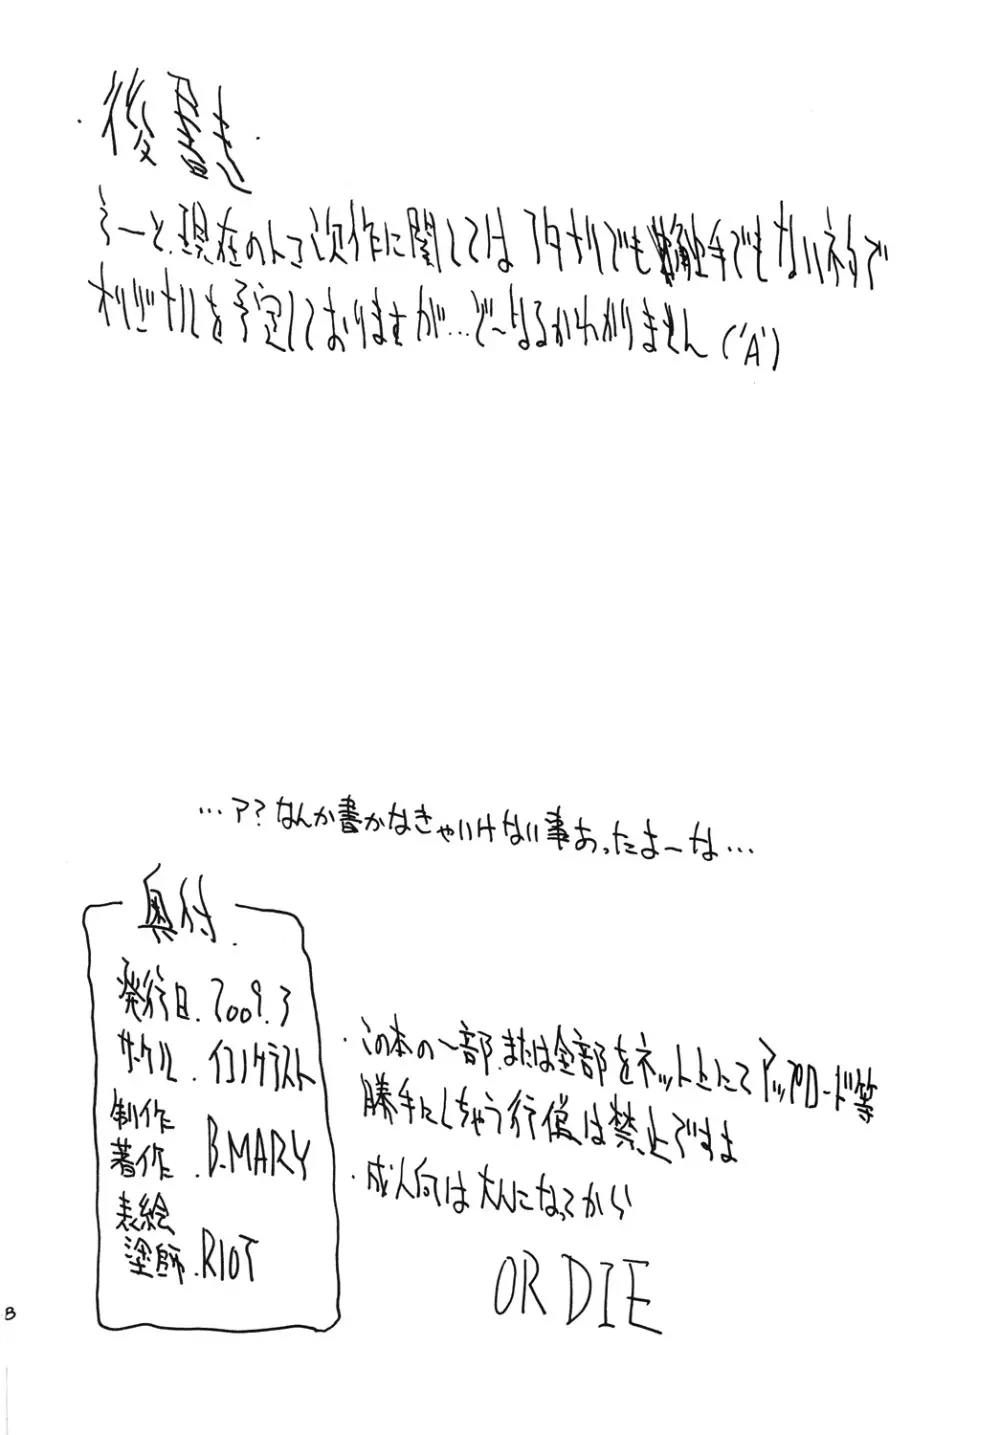 ・後書き・
えーと、現在のトコ次作に関してはフタナリでも触手でもないネタで
オリジナルを予定しておりますが…ど〜なるかわかりません('A`)
…ア？なんか書かなきゃいけない事あったよーな…
奥付.
発行日.2009.3
サークル.イコノクラスト
制作
著作.B.MARY
表絵
塗師.RIOT
・この本の一部.または全部をネット上にてアップロード等
勝手にしちゃう行為は禁止ですよ
・成人向は大人になってから
OR DIE